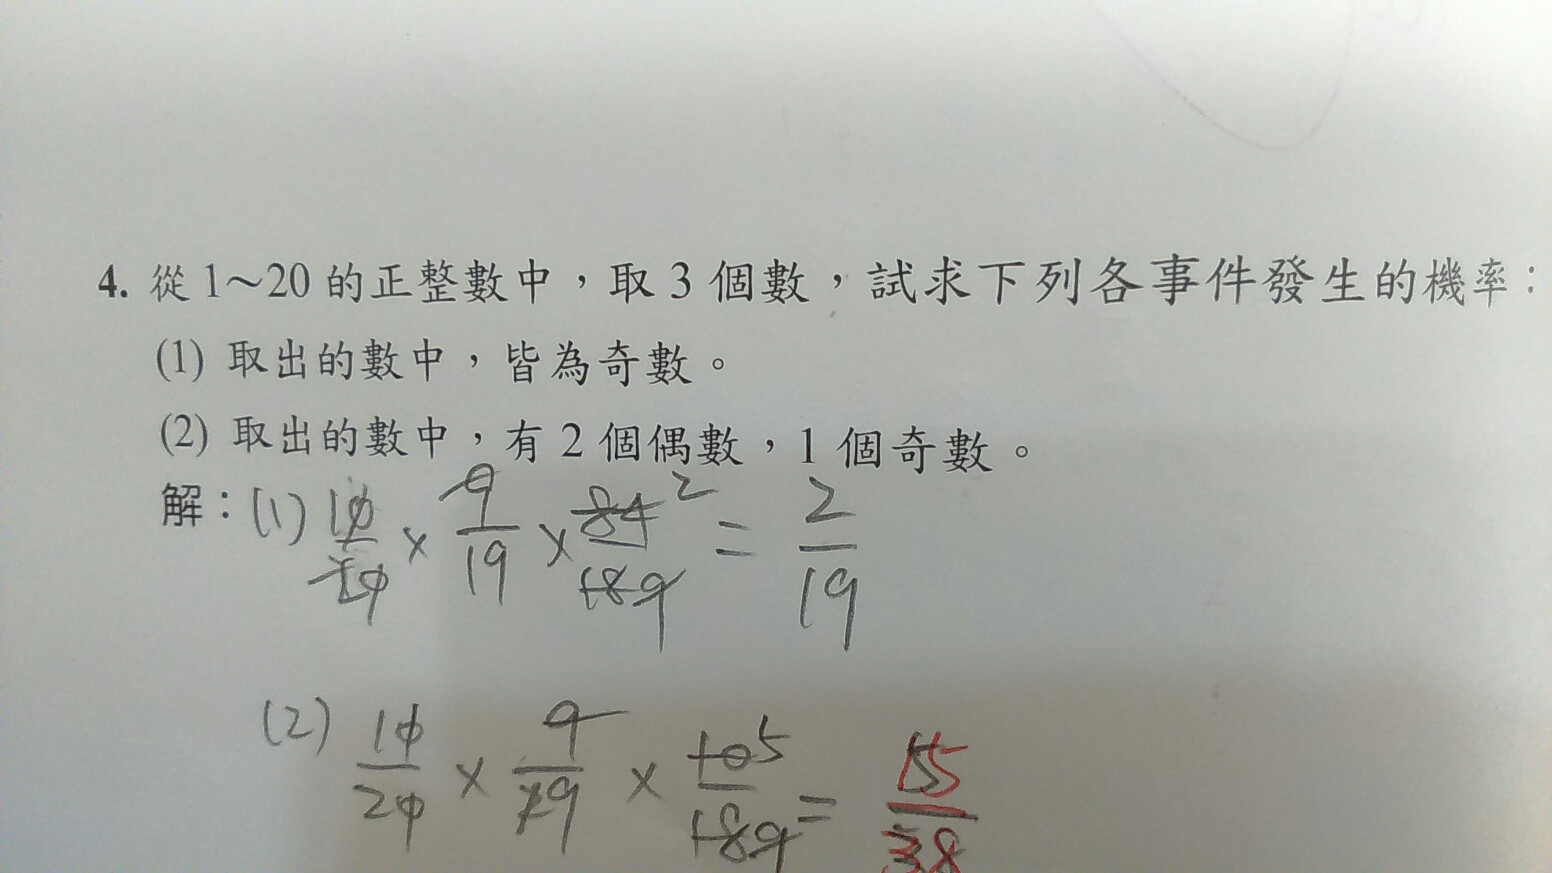 4. 從 1～20 的正整數中，取 3 個數，試求下列各事件發生的機率：
(1) 取出的數中，皆為奇數。
(2) 取出的數中，有 2 個偶數，1 個奇數。
解：(1) 10/20 × 9/19 × 84 2/189 = 2/19
(2) 10/20 × 9/19 × 10 5/189 = 15/38